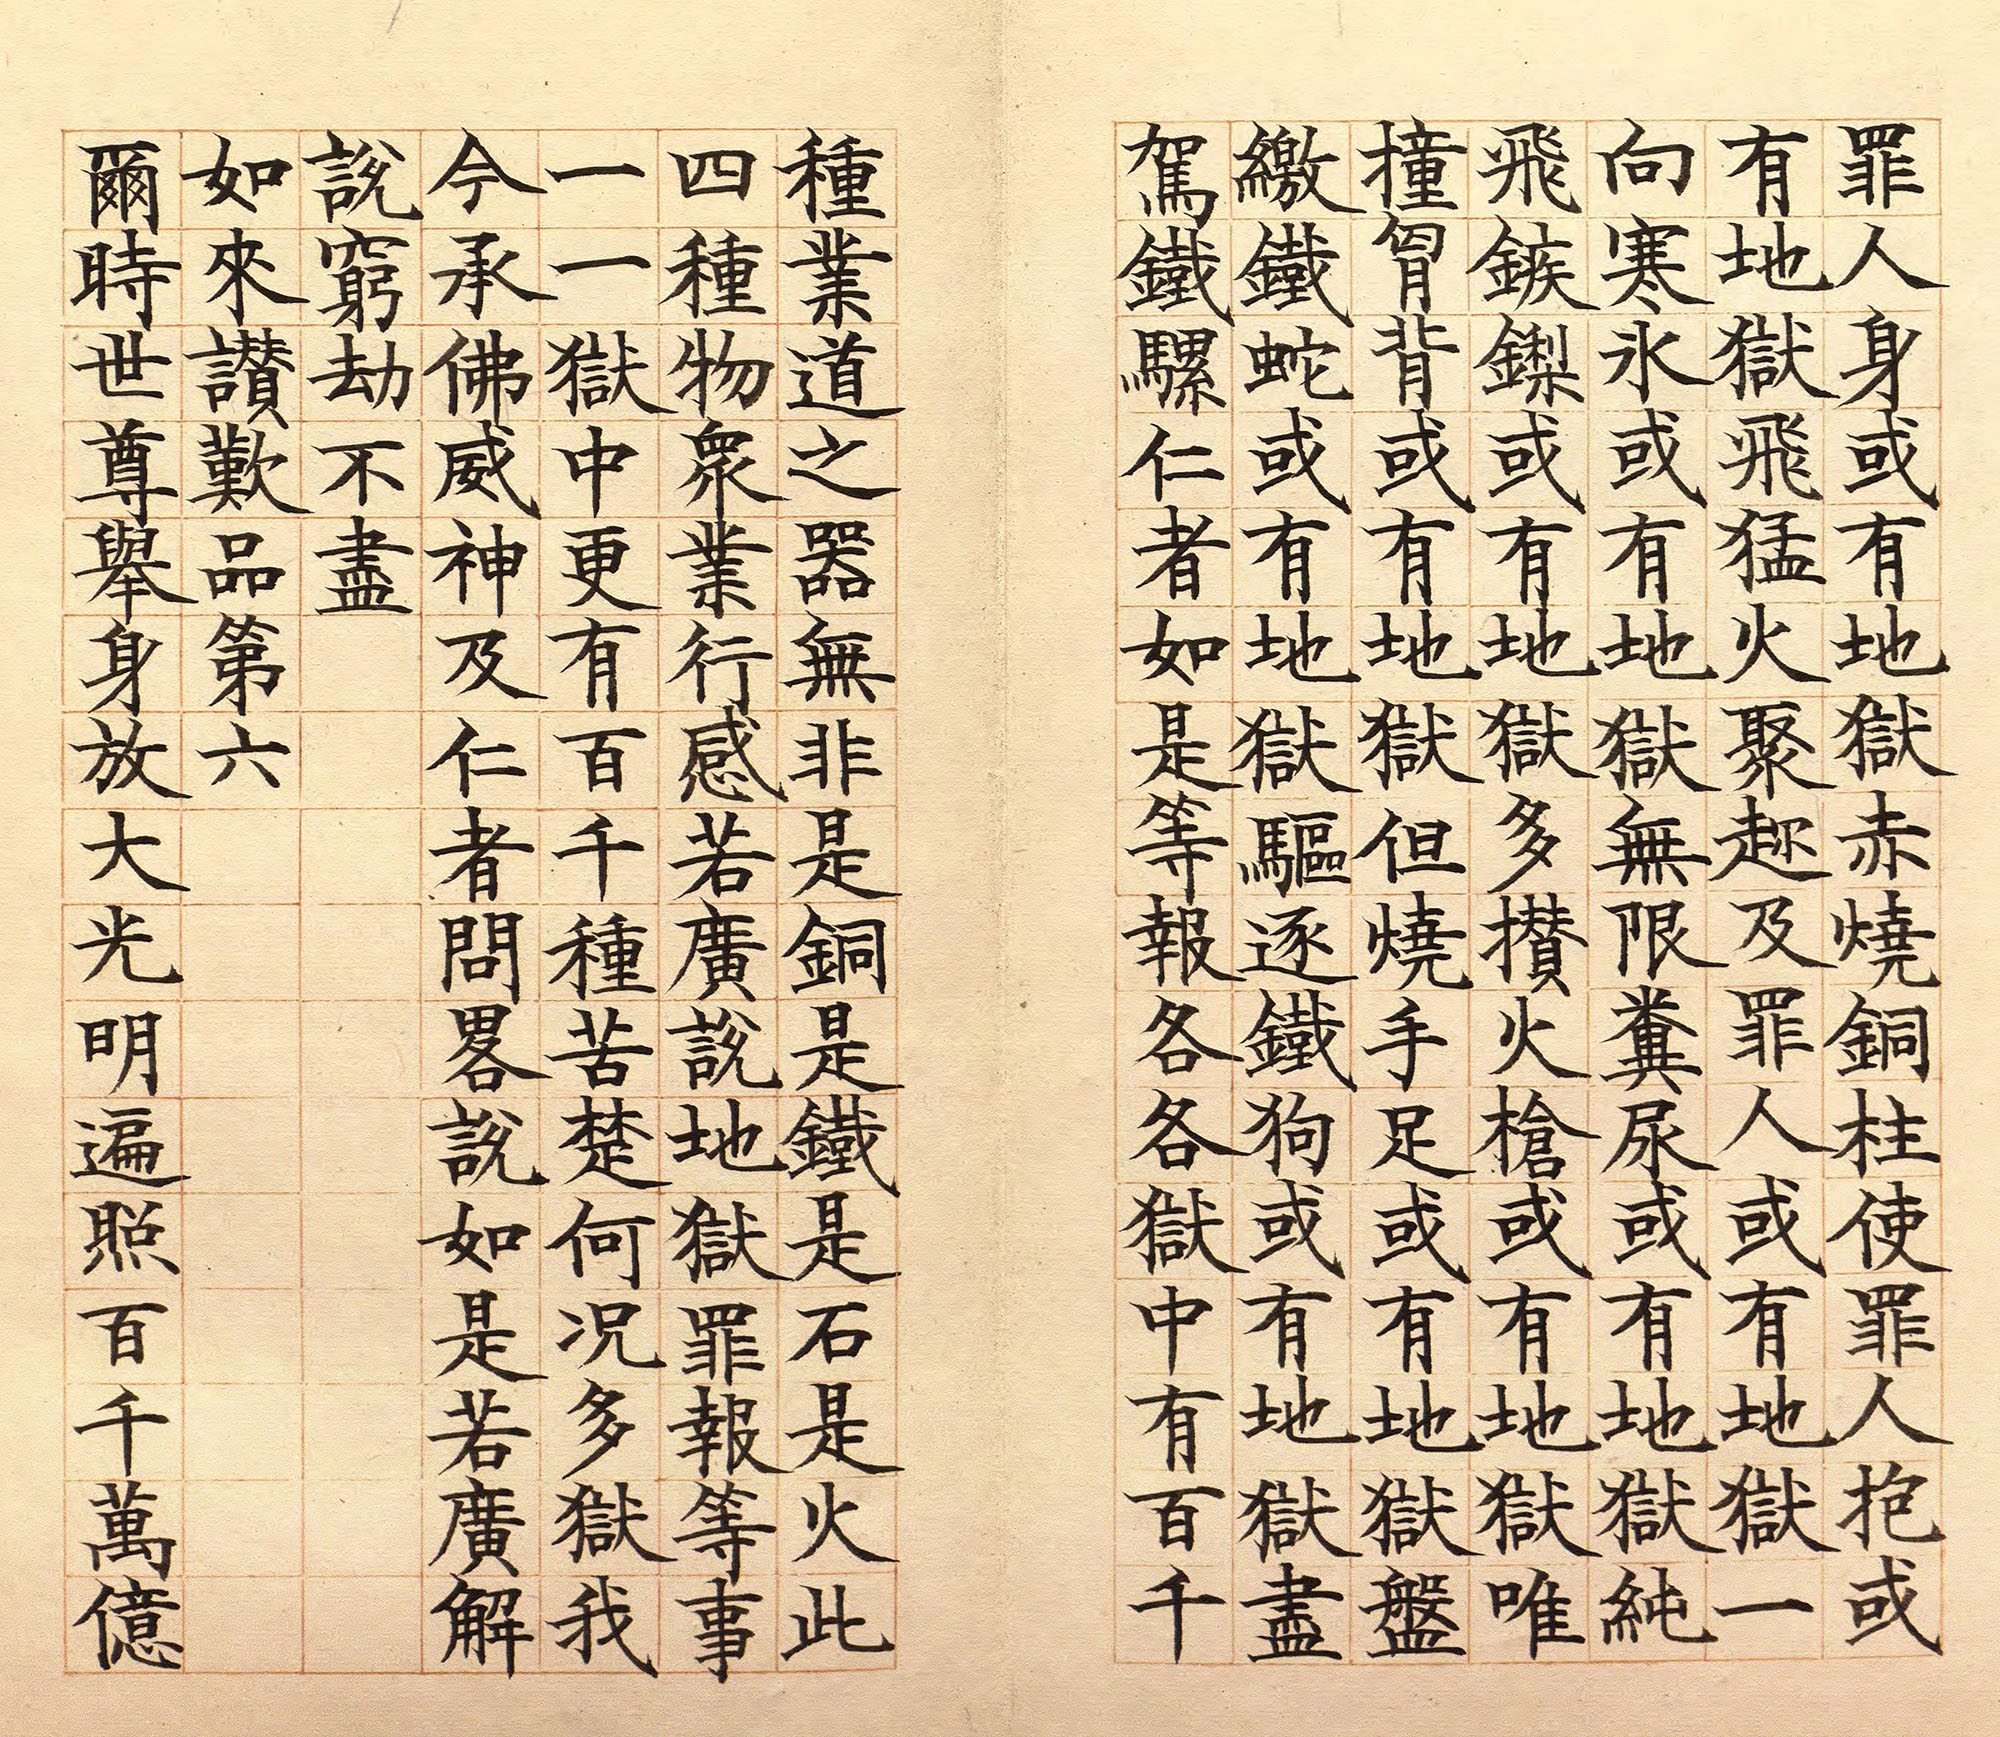 罪人身或有地獄赤燒銅柱使罪人抱或
有地獄飛猛火聚趂及罪人或有地獄一
向寒氷或有地獄無限糞尿或有地獄純
飛鏃鏫或有地獄多攢火槍或有地獄唯
撞胷背或有地獄但燒手足或有地獄盤
繳鐵蛇或有地獄驅逐鐵狗或有地獄盡
駕鐵騾仁者如是等報各各獄中有百千
種業道之器無非是銅是鐵是石是火此
四種物衆業行感若廣說地獄罪報等事
一一獄中更有百千種苦楚何况多獄我
今承佛威神及仁者問畧說如是若廣解
說窮劫不盡
如來讚歎品第六
爾時世尊舉身放大光明遍照百千萬億